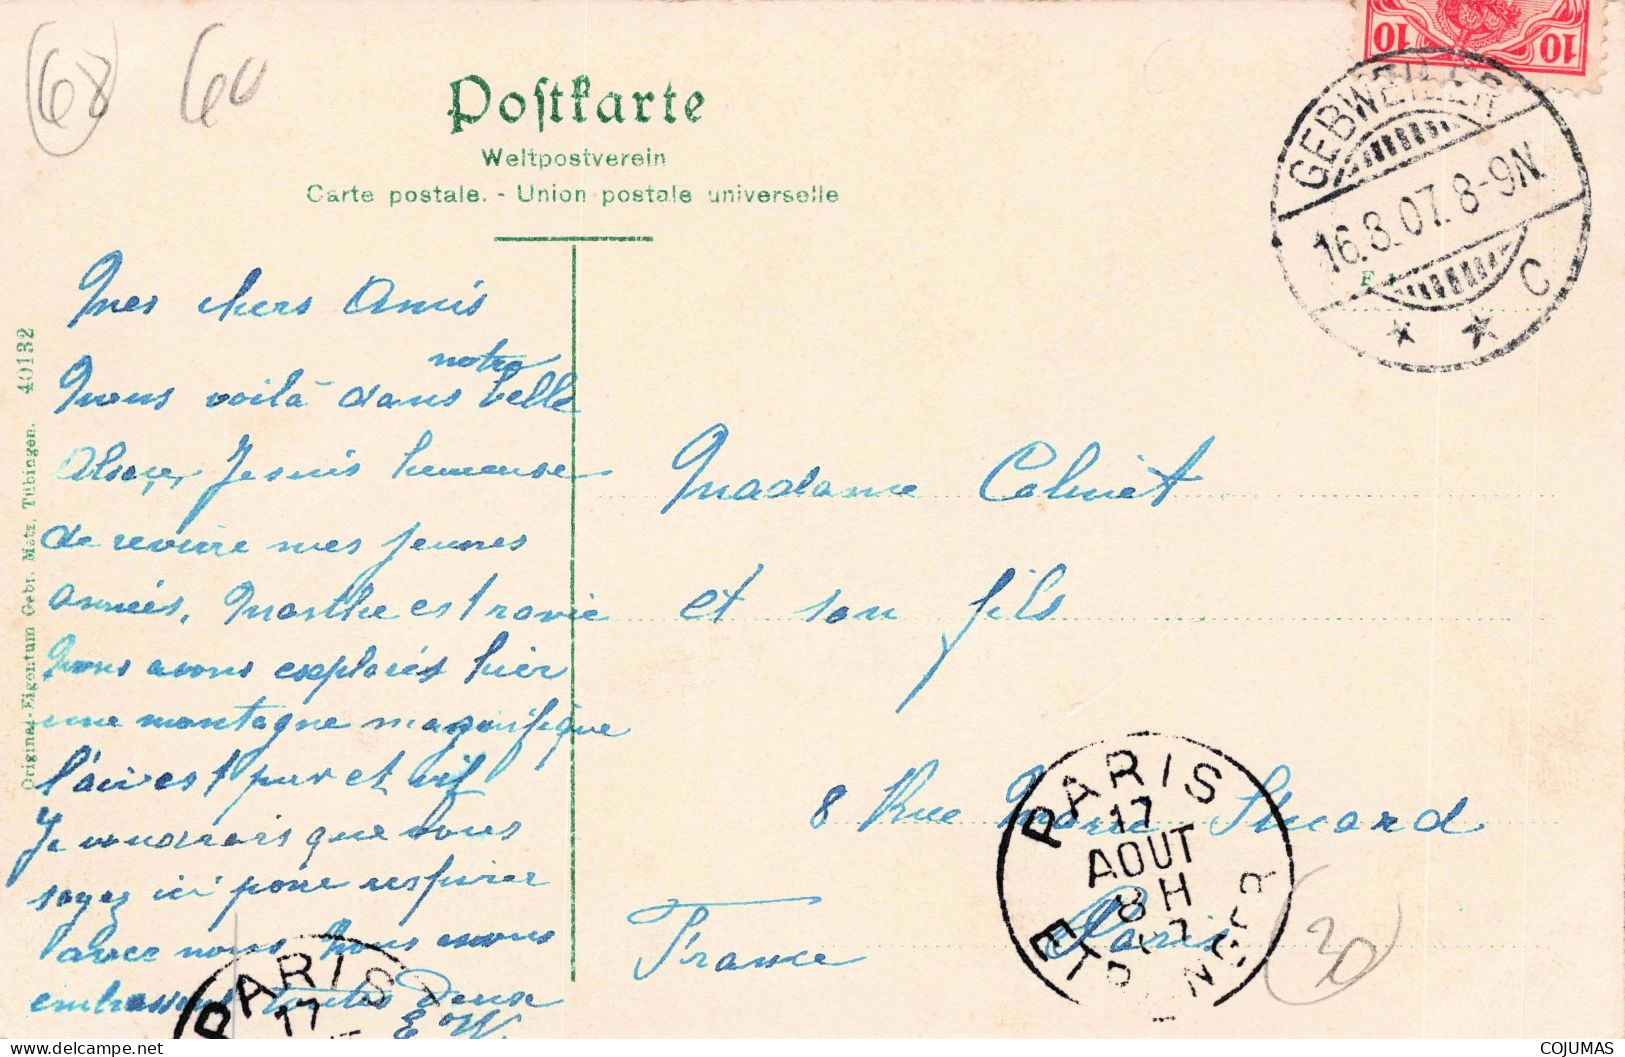 68
60
10 10
Postkarte
Weltpostverein
Carte postale. - Union postale universelle
GEBWEILER
16.8.07. 8-9N.
C
* *
Original-Eigentum Gebr. Metz, Tübingen. 40132
Mes chers Amis
Nous voilà dans notre belle
Alsace, Je suis heureuse
de revivre mes jeunes
années, Marthe est ravie
Nous avons explorés hier
une montagne magnifique
l'air est pur et vif
Je voudrais que vous
soyez ici pour respirer
l'avec nous. Nous vous
embrassons toutes deux
E W
Madame
et son fils
8 Rue Marie Stuard
Paris
France
PARIS
17
AOUT
8H
07
ETRANGER
PARIS
17
30
COJUMAS